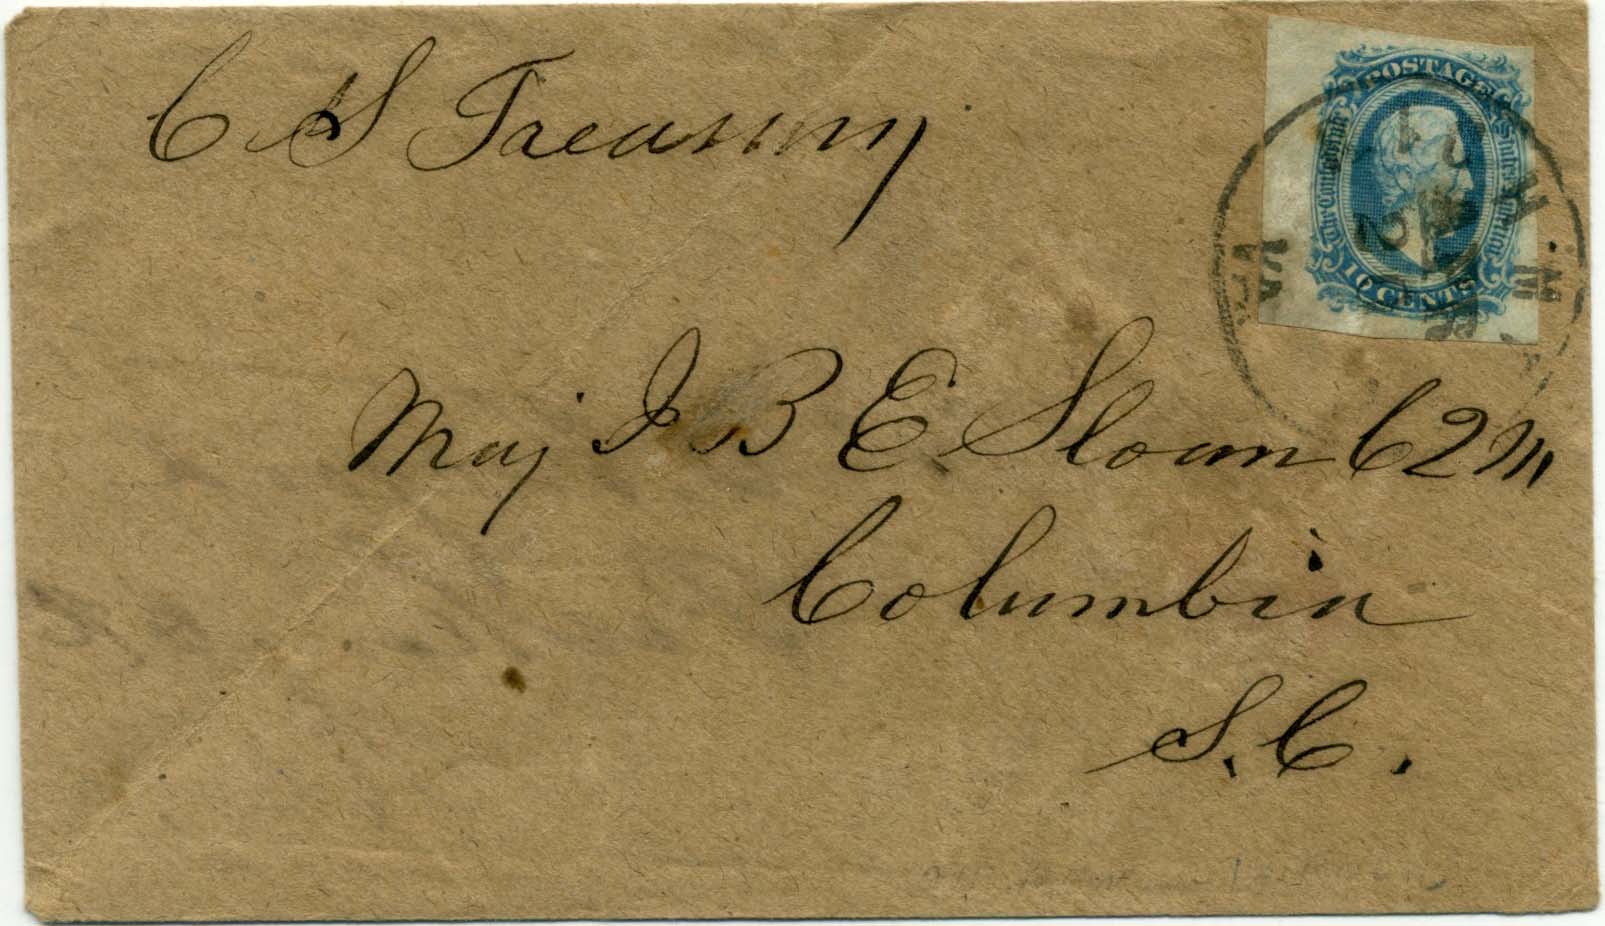 C. S Treasury
POSTAGE
The Confederate States of America
10 CENTS
VA
Maj J B E Sloan C2M
Columbia
S. C.